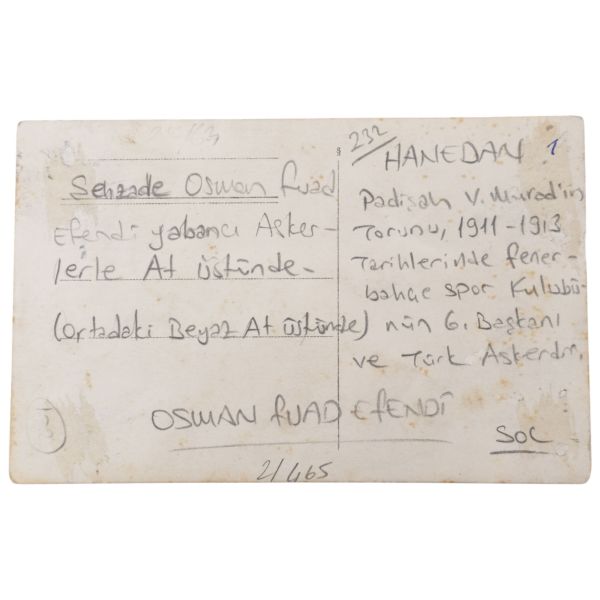 232/
HANEDAN
1
Şehzade Osman fuad
Efendi yabancı Asker-
lerle At üstünde-
(Ortadaki Beyaz At üstünde)
Padişah V. Murad'ın
Torunu, 1911-1913
Tarihlerinde fener-
bahçe spor Kulubü-
nün 6. Başkanı
ve Türk Askerdir,
OSMAN fUAD EfENDİ
3
SOL
21465